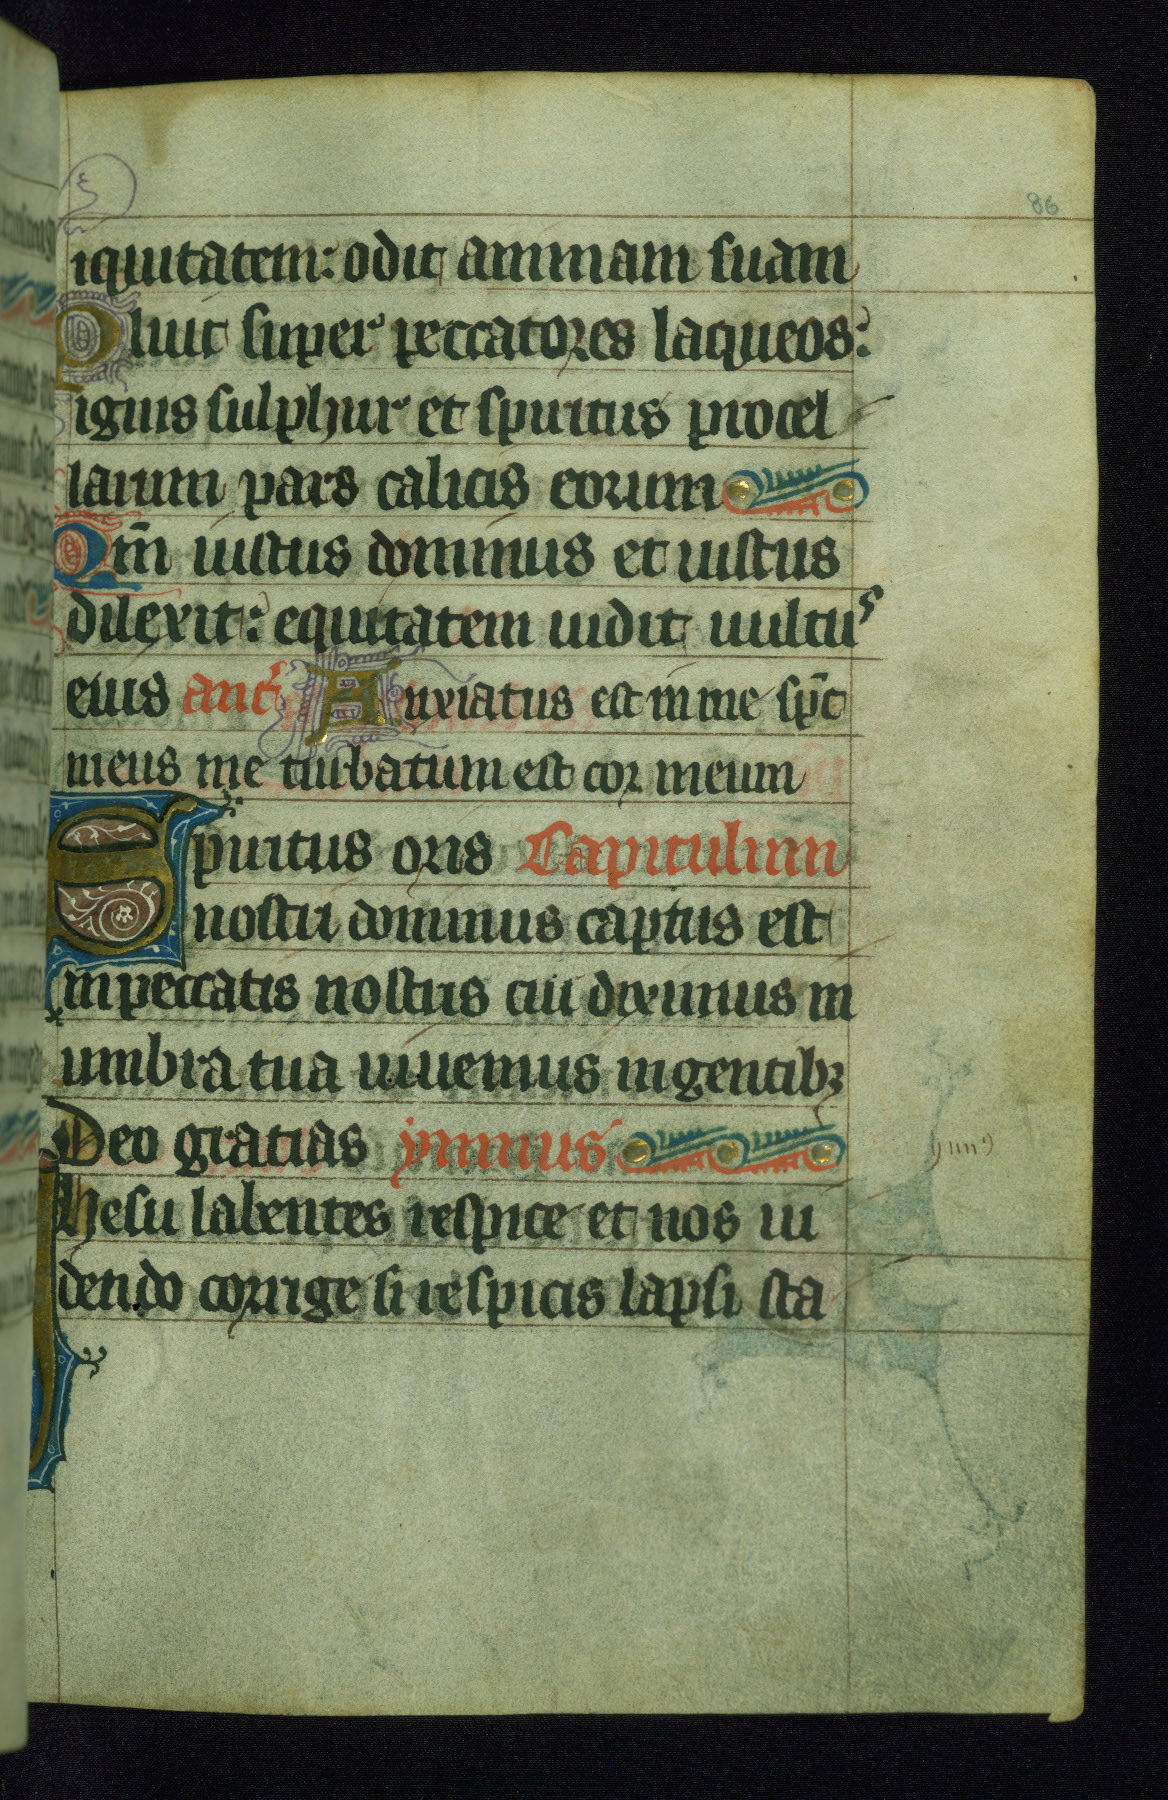 86
iquitatem: odit animam suam
Pluit super peccatores laqueos:
ignis sulphur et spiritus procel
larum pars calicis eorum
Qm̄ iustus dominus et iustus
dilexit: equitatem uidit uultus
eius ant̄ Anxiatus est in me sp̄c
meus me turbatum est cor meum
Spiritus oris Capitulum
nostri dominus captus est
in peccatis nostris cui diximus in
umbra tua uiuemus in gentibꝫ
Deo gratias ymnus
ymnꝰ
Ihesu labentes respice et nos ui
dendo corrige si respicis lapsi sta